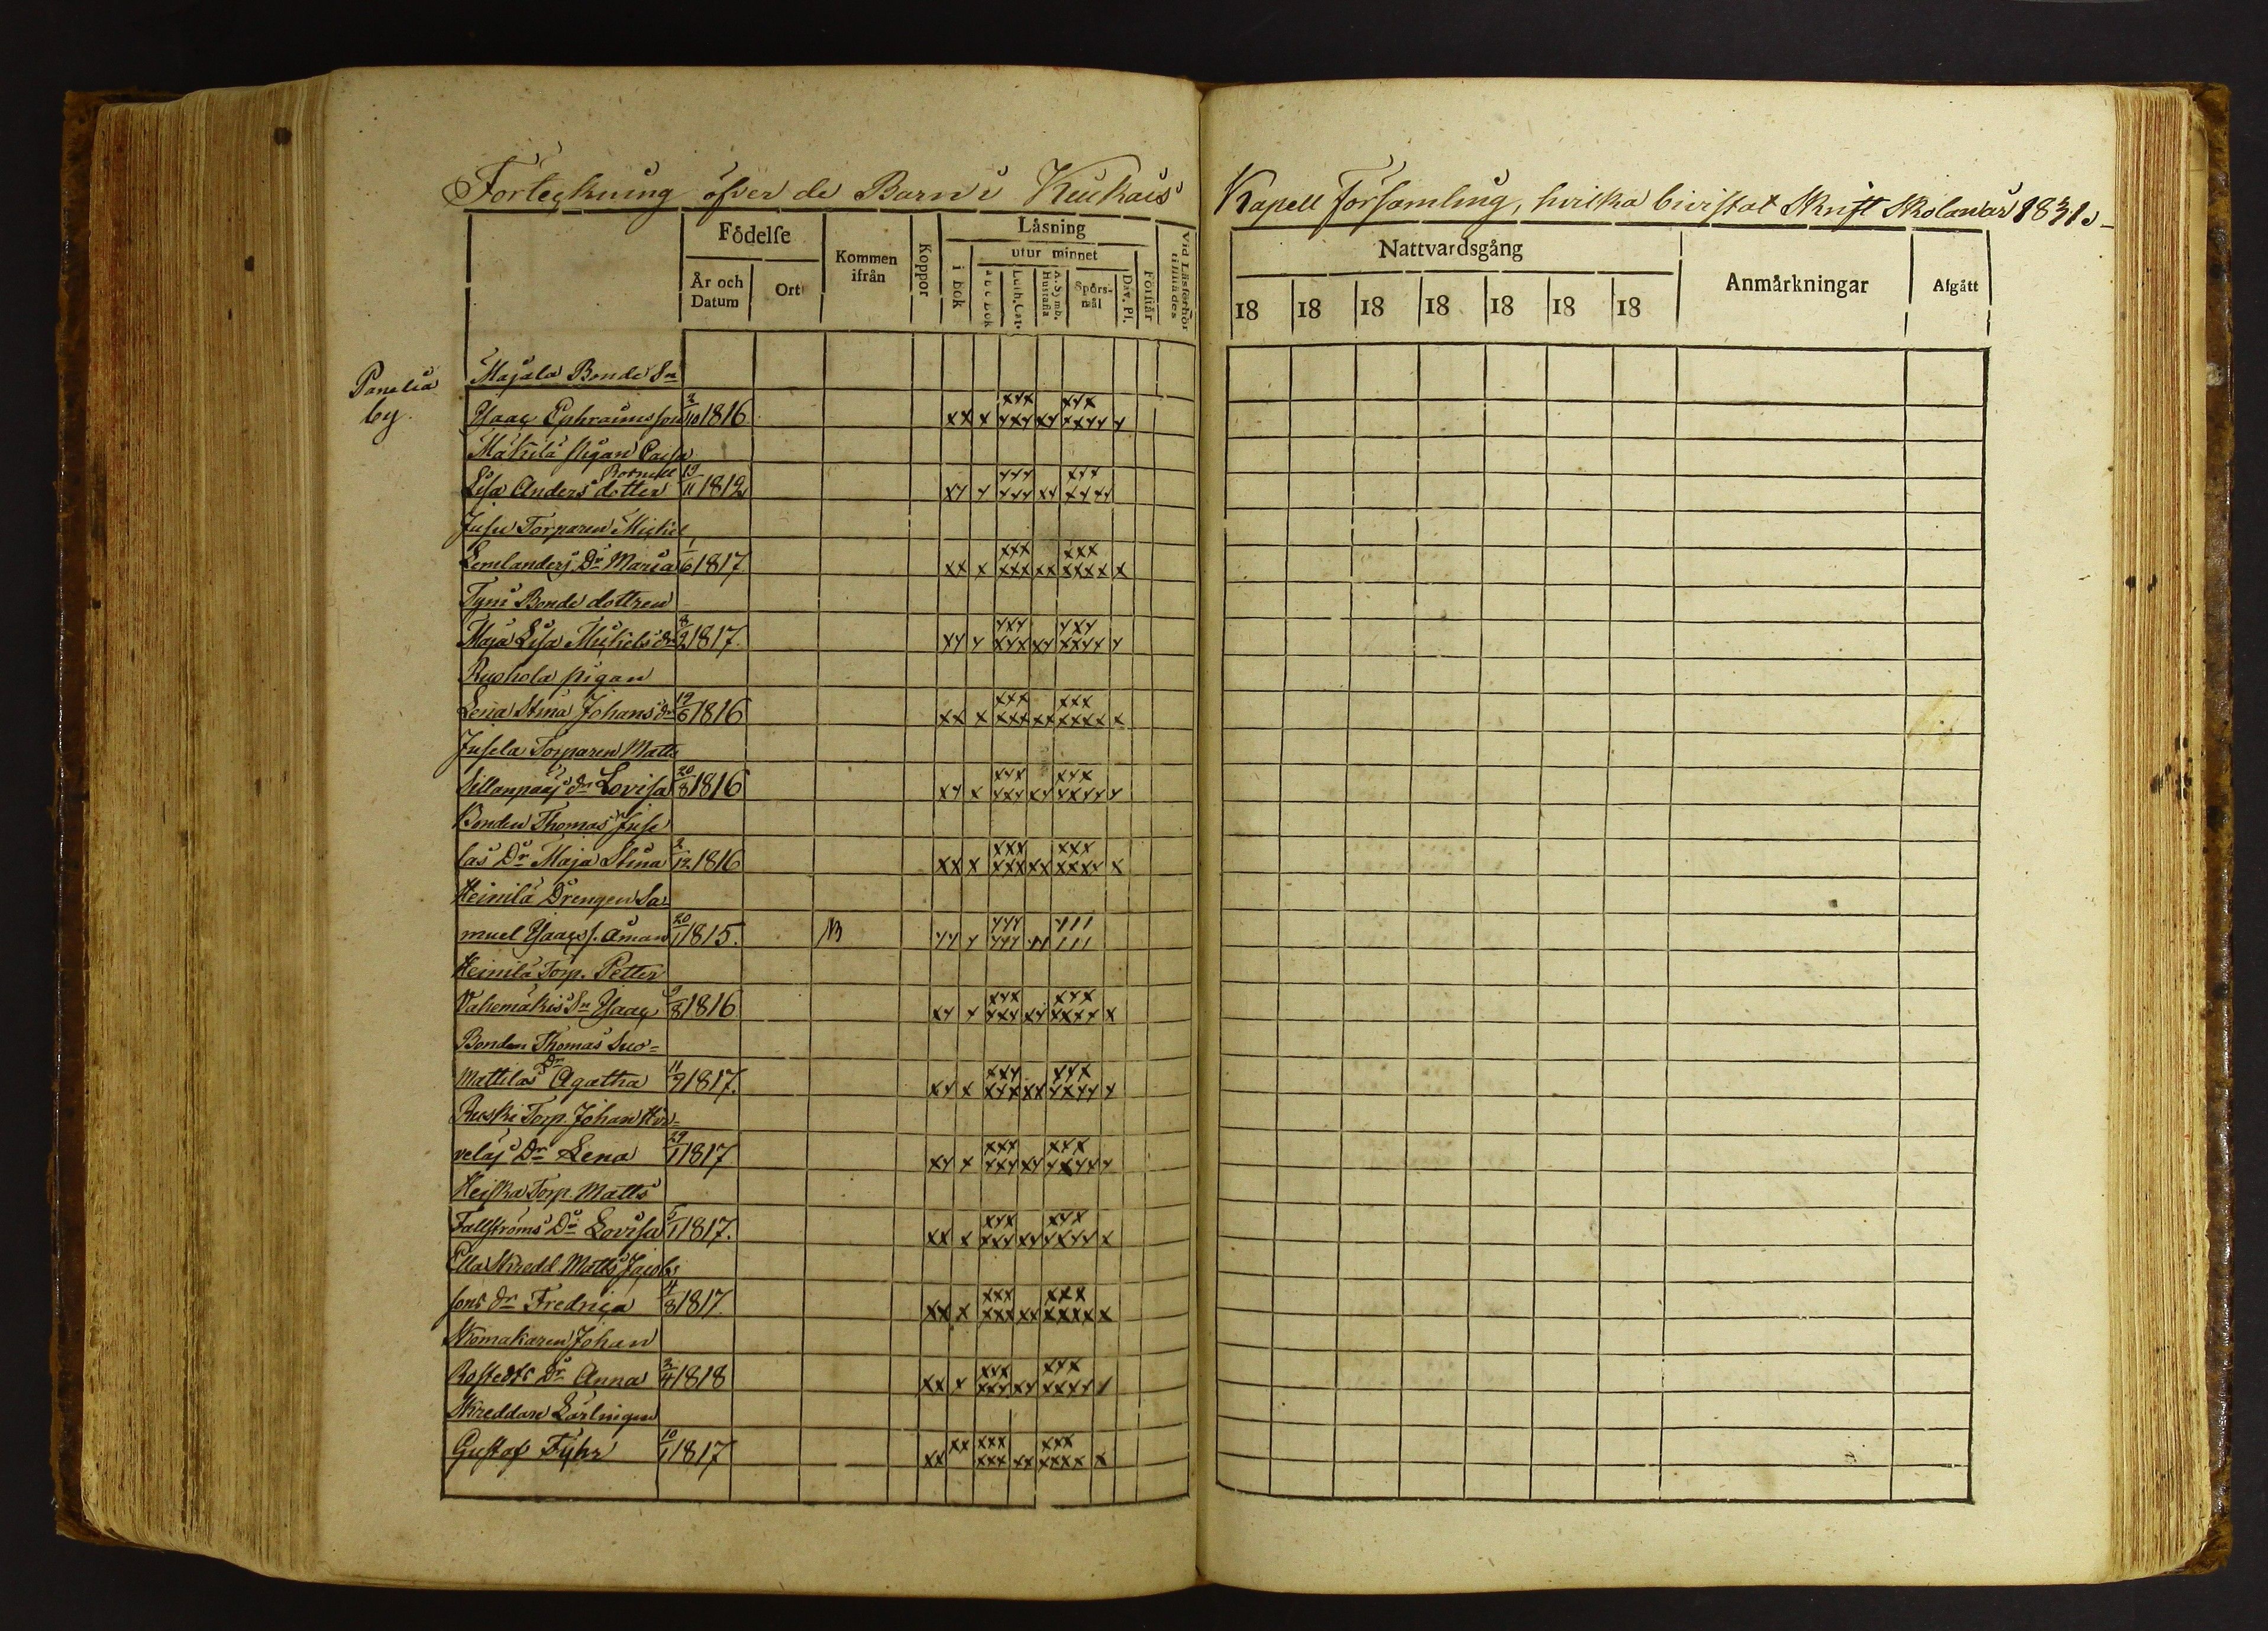 Förteckning öfver de Barn i Kiukais
Kapell Församling, hvilka bivistat Skrift Skolan år 1831.
Födelse
År och Datum
Ort
Kommen ifrån
Koppor
Låsning
i bok
utur minnet
a b c bok
Luth. Cat.
A. Symb. Hustafla
Spörs-mål
Dav. Ps.
Förstår
Vid Läsförhör
Nattvardsgång
18 18 18 18 18 18 18
Anmårkningar
Afgått
Panelia
by.
Majala Bonde Sn
Isaac Ephraimsson 2/10 1816. xx x xxx xxx xx xxx xxxx x
Mäkilä pigan Caisa
Lisa Anders dotter 19/11 1812 xx x xxx xxx xx xxx xxxx
Jusu Torparen Michel
Lemlanders Dr Maria 1/6 1817 xx x xxx xxx xx xxx xxxx x
Tyni Bonde dottren
Maja Lisa Michelsdr 8/2 1817. xx x xxx xxx xx xxx xxxx x
Ruohola pigan
Lena Stina Johansdr 19/6 1816 xx x xxx xxx xx xxx xxxx x
Jusela Torparen Matts
Sillanpääs dr Lovisa 20/8 1816 xx x xxx xxx xx xxx xxxx x
Bonden Thomas Juse
las Dr Maja Stina 2/12 1816 xx x xxx xxx xx xxx xxxx x
Heinilä Drengen Sa-
muel Isaacs s. Åman 20/1 1815. NB
Heinilä Torp. Petter
Vahemäkis Sn Isaac 1816 xx x xxx xxx xx xxx xxxx x
Bonden Thomas Suo=
Mattilas Dr Agatha 11/9 1817. xx x xxx xxx xx xxx xxxx x
Ruski Torp. Johan Hir=
veläs Dr Lena 29/1 1817 xx x xxx xxx xx xxx xxxx x
Heiska Torp. Matts
Fallströms Dr Lovisa 5/1 1817. xx x xxx xxx xx xxx xxxx x
Ella Skredd. Matts Jacobs
sons dr Fredrica 4/8 1817. xx x xxx xxx xx xxx xxxx x
Skomakaren Johan
Rostedts Dr Anna 3/4 1818 xx x xxx xxx xx xxx xxxx /
Skreddare Lärlingen
Gustaf Fyhr 10/1 1817 xx xx xxx xxx xx xxx xxxx x